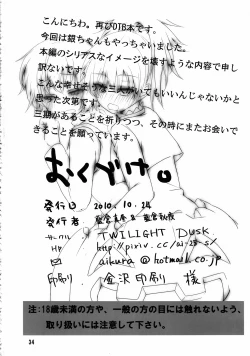 こんにちわ。再びDTB本です。
今回は銀ちゃんもやっちゃいました。
本編のシリアスなイメージを壊すような内容で申し
訳ないです。
こんな幸せそうな三人がいてもいいんじゃないかと
思った次第です。
三期があることを祈りつつ、その時にまたお会いで
きることを願っています。
おくづけ。
発行日 2010.10.24
発行者
サークル TWILIGHT DUSK.
HP http://pixiv.cc/ai-28-s/
aikura@hotmail.co.jp
印刷 金沢印刷 様
注:18歳未満の方や、一般の方の目には触れないよう、
取り扱いには注意して下さい。
34